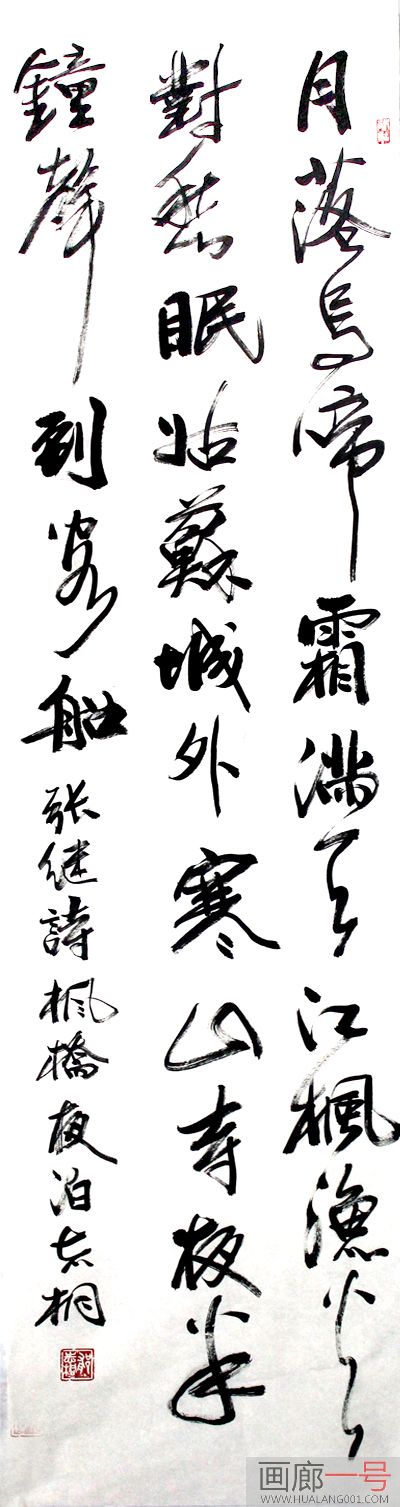 月落烏啼霜滿天江楓漁火
對愁眠姑蘇城外寒山寺夜半
鐘聲到客船张继詩楓橋夜泊志桐
画廊一号
WWW.HUALANG001.COM